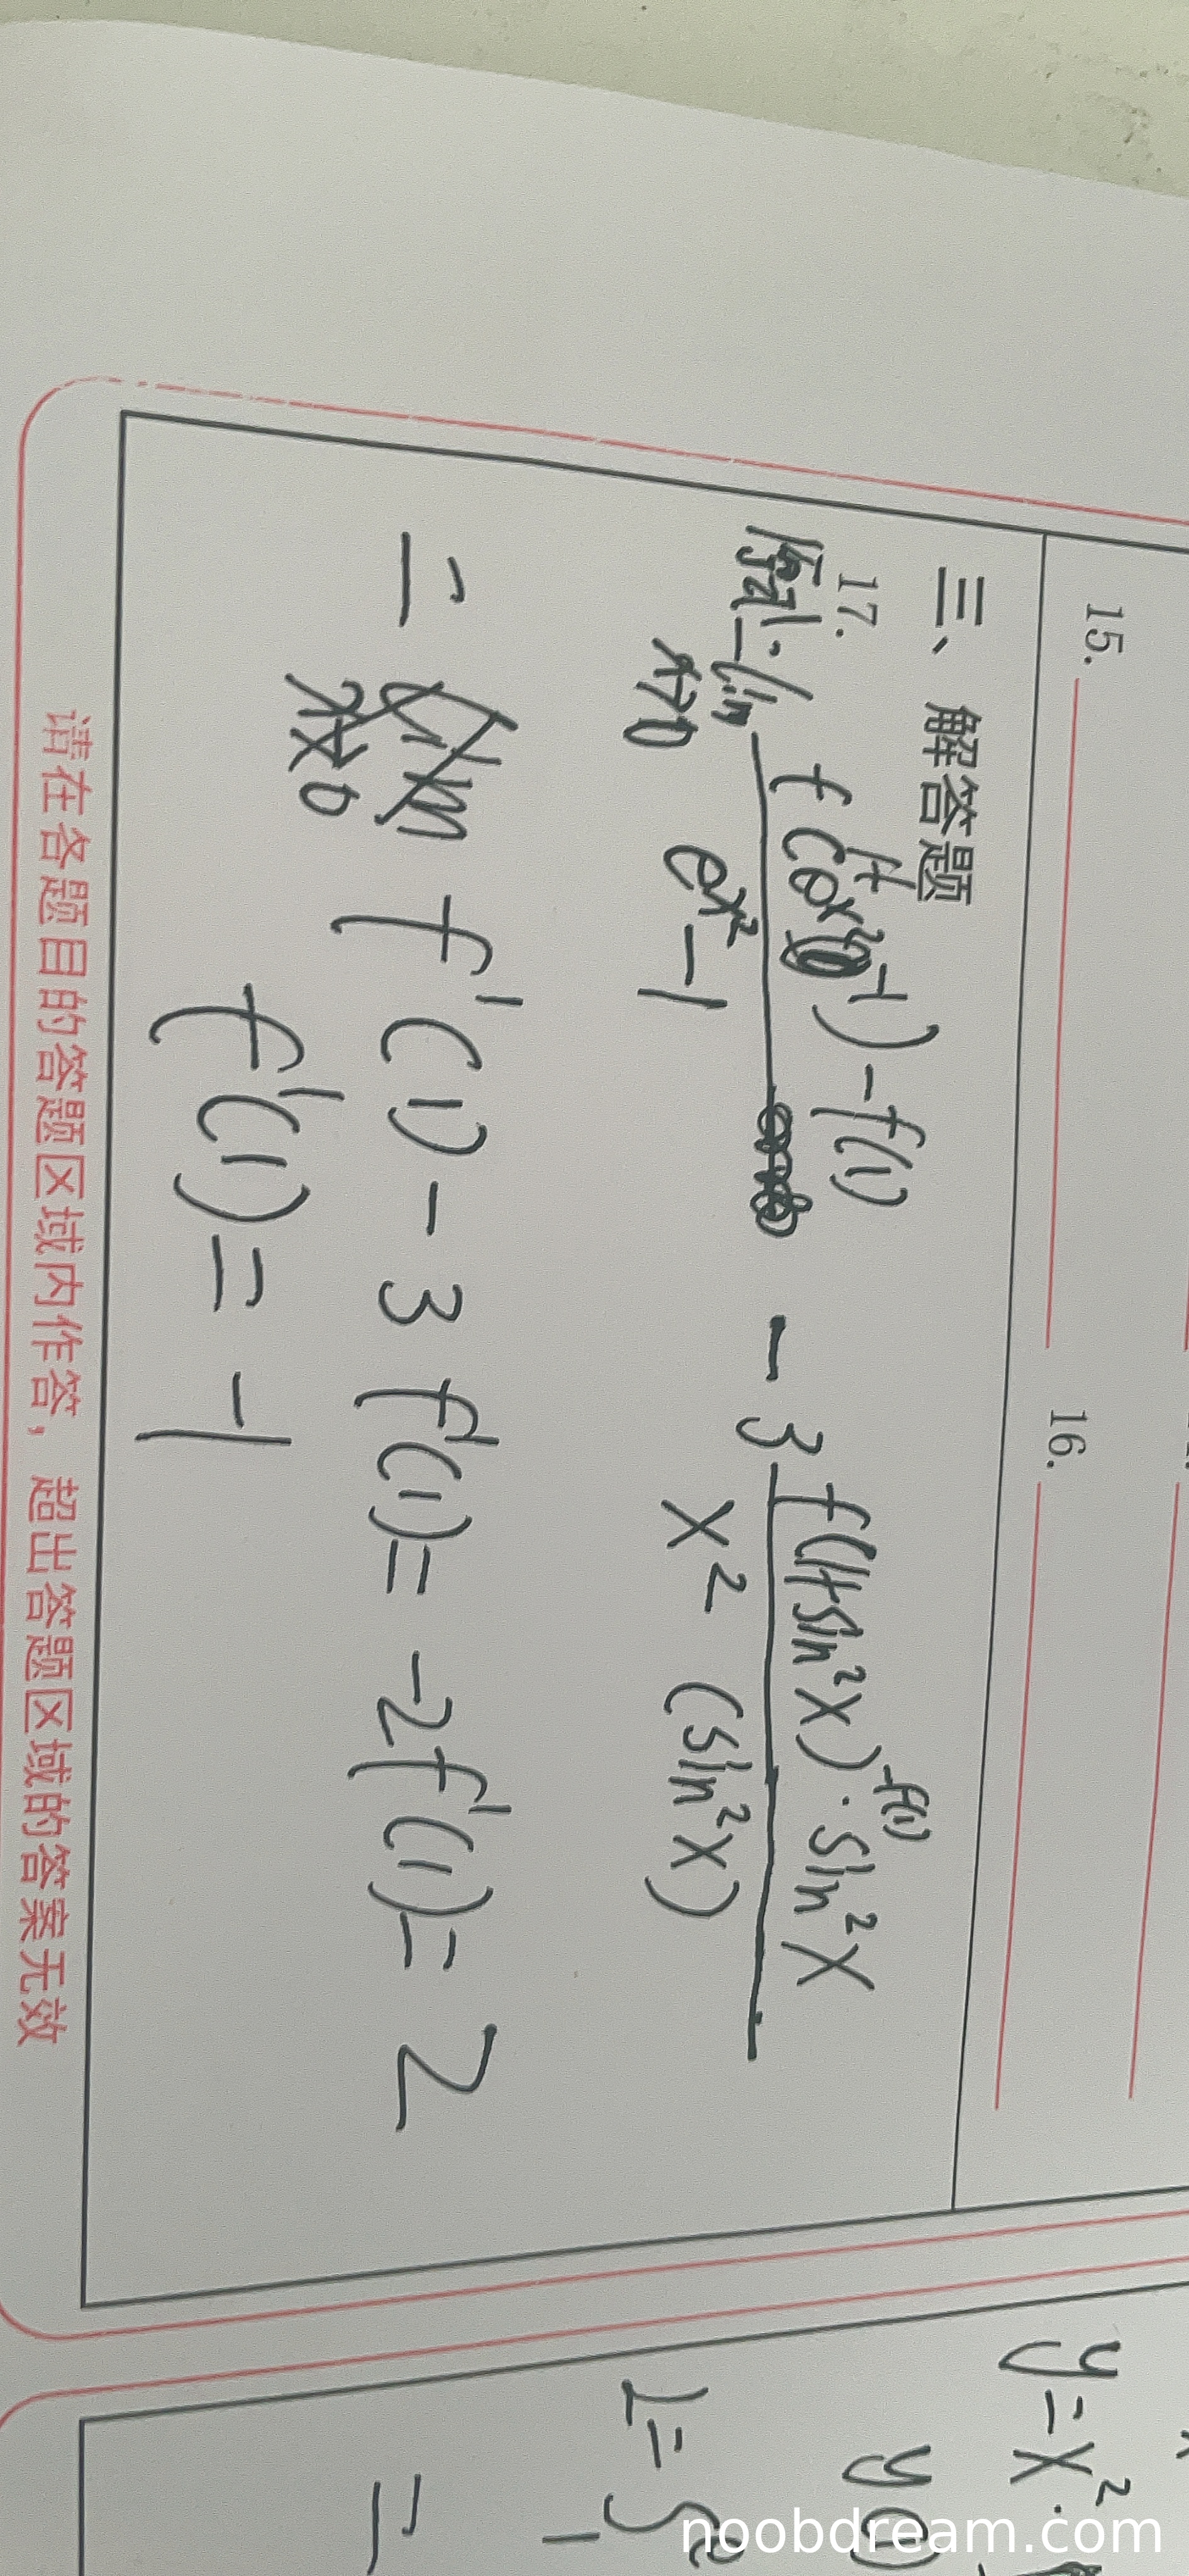 15. 16.
三、解答题
17.
原式=lim x→0 f(1+e^x²-1)-f(1) / e^x²-1 - 3 f(1+sin²x)-f(1)·sin²x / x² (sin²x)
= f'(1)-3f'(1)=-2f'(1)=2
f'(1)=-1
请在各题目的答题区域内作答，超出答题区域的答案无效
y=x²·
noobdream.com